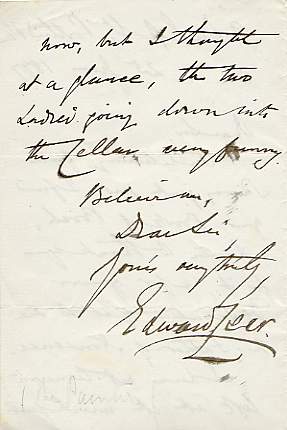 now, but I thought
at a glance, the two
Ladies going down into
the Cellar very funny.
Believe me,
Dear Sir,
Yours very truly,
Edward